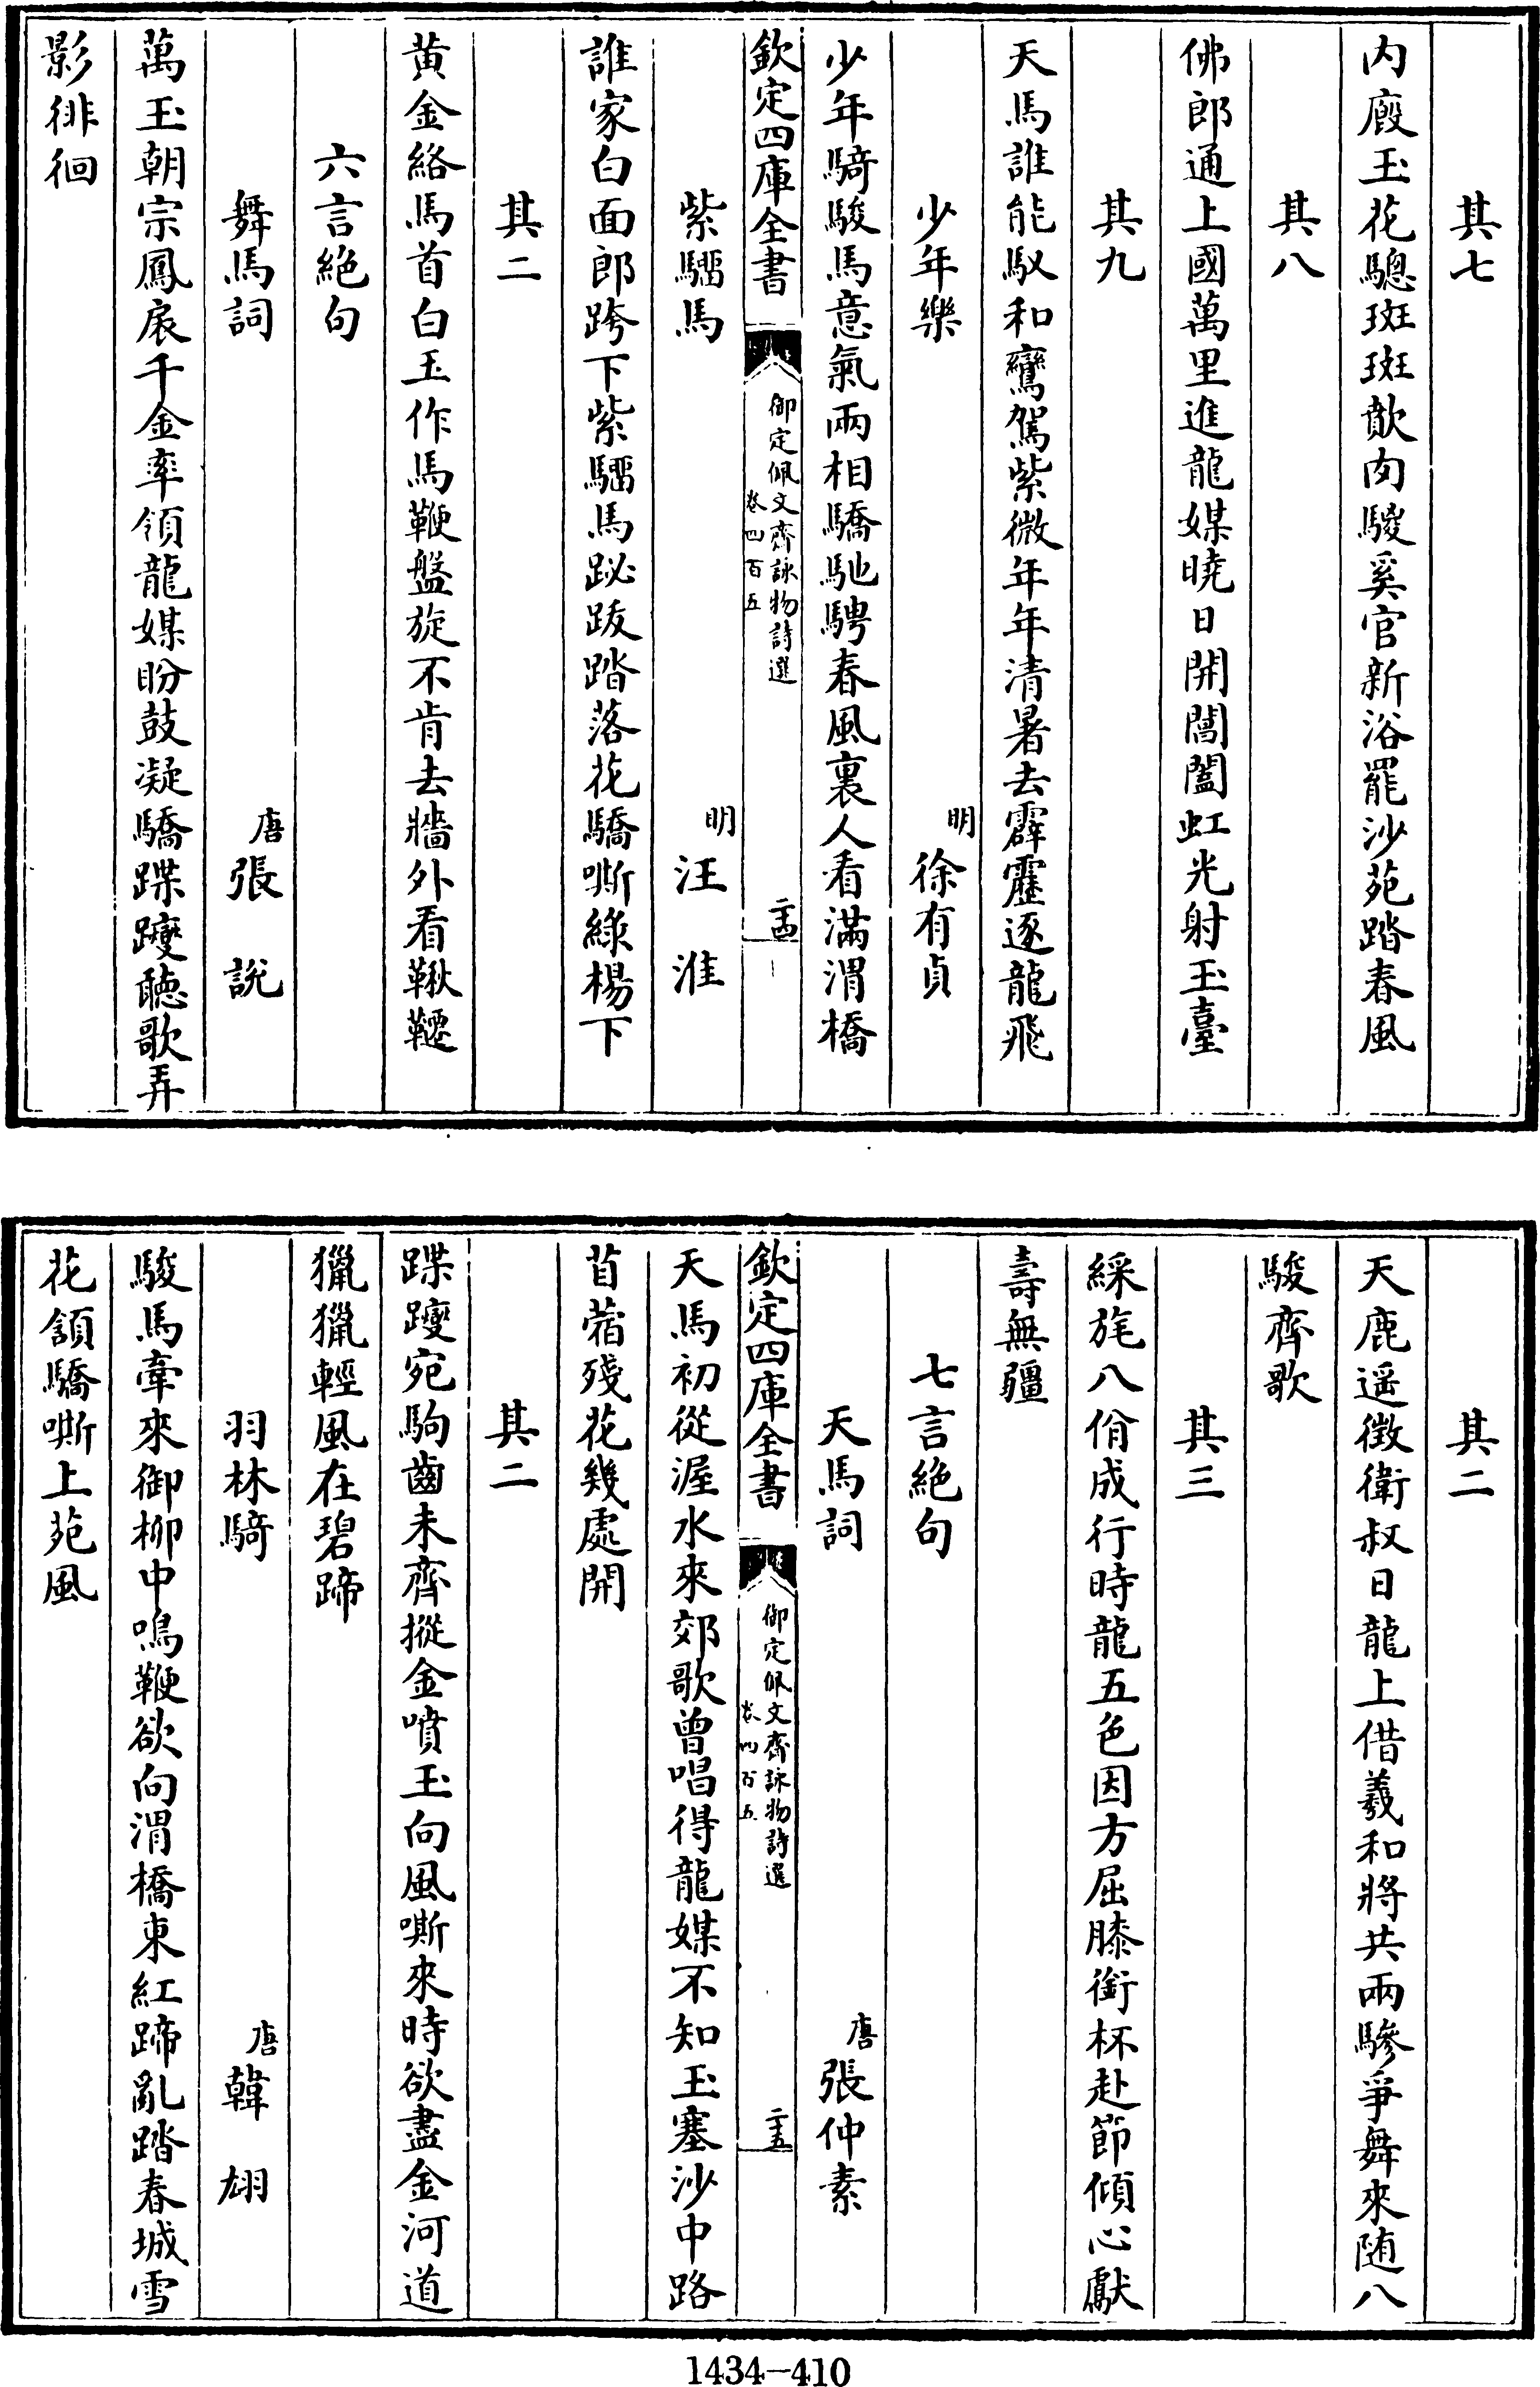 其七
内廐玉花驄斑斑歕肉騣奚官新浴罷沙苑踏春風
其八
佛郎通上國萬里進龍媒曉日開閶闔虹光射玉臺
其九
天馬誰能馭和鸞駕紫微年年清暑去霹靂逐龍飛
少年樂 明徐有貞
少年騎駿馬意氣兩相驕馳騁春風裏人看滿渭橋
欽定四庫全書 御定佩文齋詠物詩選 卷四百五 二十四
紫騮馬 明汪淮
誰家白面郎跨下紫騮馬跛跋踏落花驕嘶綠楊下
其二
黄金絡馬首白玉作馬鞭盤旋不肯去牆外看鞦韆
六言絶句
舞馬詞 唐張說
萬玉朝宗鳳扆千金率領龍媒盼鼓凝驕蹀躞聽歌弄
影徘徊
其二
天鹿遥徵衛叔日龍上借羲和將共兩驂爭舞來随八
駿齊歌
其三
綵旄八佾成行時龍五色因方屈膝銜杯赴節傾心獻
壽無疆
七言絶句
天馬詞 唐張仲素
欽定四庫全書 御定佩文齋詠物詩選 卷四百五 二十五
天馬初從渥水來郊歌曾唱得龍媒不知玉塞沙中路
苜蓿殘花幾處開
其二
蹀躞宛駒齒未齊摐金噴玉向風嘶來時欲盡金河道
獵獵輕風在碧蹄
羽林騎 唐韓翃
駿馬牽來御柳中鳴鞭欲向渭橋東紅蹄亂踏春城雪
花頷驕嘶上苑風
1434-410